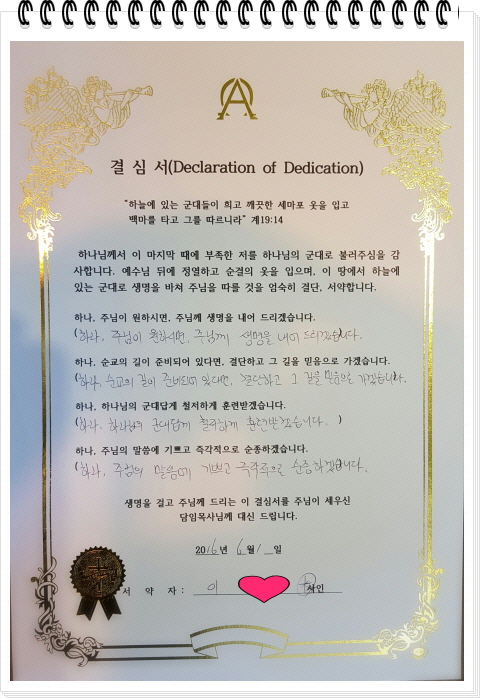 결 심 서(Declaration of Dedication)
"하늘에 있는 군대들이 희고 깨끗한 세마포 옷을 입고
백마를 타고 그를 따르니라" 계19:14
하나님께서 이 마지막 때에 부족한 저를 하나님의 군대로 불러주심을 감
사합니다. 예수님 뒤에 정렬하고 순결의 옷을 입으며, 이 땅에서 하늘에
있는 군대로 생명을 바쳐 주님을 따를 것을 엄숙히 결단, 서약합니다.
하나, 주님이 원하시면, 주님께 생명을 내어 드리겠습니다.
(하나, 주님이 원하시면, 주님께 생명을 내어 드리겠습니다.
하나, 순교의 길이 준비되어 있다면, 결단하고 그 길을 믿음으로 가겠습니다.
(하나, 순교의 길이 준비되어 있다면, 결단하고 그 길을 믿음으로 가겠습니다.
하나, 하나님의 군대답게 철저하게 훈련받겠습니다.
(하나, 하나님의 군대답게 철저하게 훈련받겠습니다. )
하나, 주님의 말씀에 기쁘고 즉각적으로 순종하겠습니다.
(하나, 주님의 말씀에 기쁘고 즉각적으로 순종하겠습니다.
생명을 걸고 주님께 드리는 이 결심서를 주님이 세우신
담임목사님께 대신 드립니다.
2016년 6월 1 일
서 약 자 : 이 사인